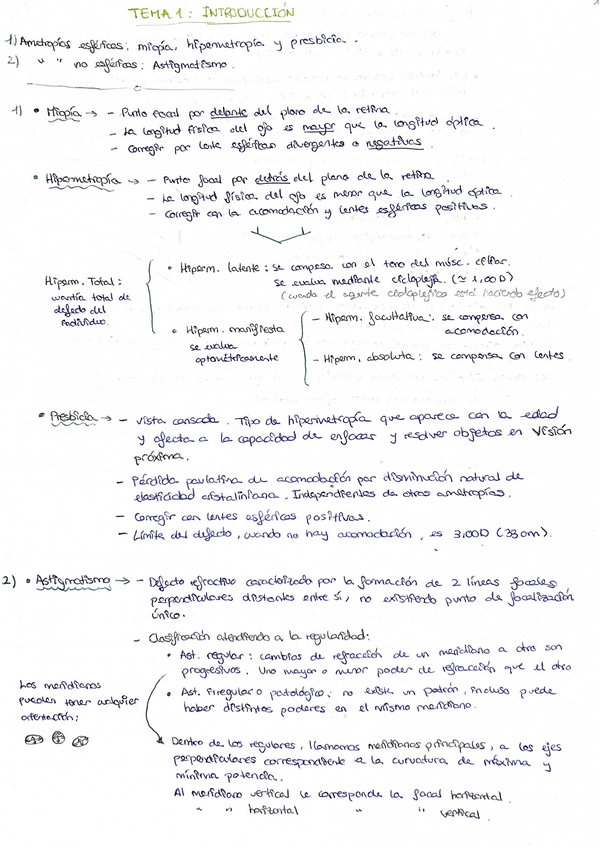 TEMA 1: INTRODUCCIÓN
1) Ametropías esféricas: miopía, hipermetropía y presbicia.
2) " " no esféricas: Astigmatismo.
1) • Miopía → - Punto focal por delante del plano de la retina.
- La longitud física del ojo es mayor que la longitud óptica.
- Corregir por lente esféricas divergentes o negativas.
• Hipermetropía → - Punto focal por detrás del plano de la retina
- La longitud física del ojo es menor que la longitud óptica.
- Corregir con la acomodación y lentes esféricas positivas.
Hiperm. Total:
cuantía total de
defecto del
individuo.
• Hiperm. latente: se compesa con el tono del músc. ciliar.
Se evalua mediante cicloplejía. (≃ 1,00D)
(cuando el agente cicloplejico está haciendo efecto)
• Hiperm. manifiesta
se evalua
optométricamente
- Hiperm. facultativa: se compensa con
acomodación.
- Hiperm. absoluta: se compensa con lentes
• Presbicia → - Vista cansada. Tipo de hipermetropía que aparece con la edad
y afecta a la capacidad de enfocar y resolver objetos en Visión
próxima.
- Pérdida paulatina de acomodación por disminución natural de
elasticidad cristaliniana. Independientes de otras ametropías.
- Corregir con lentes esféricas positivas.
- Límite del defecto, cuando no hay acomodación, es 3,00D (33cm).
2) • Astigmatismo → - Defecto refractivo caracterizado por la formación de 2 líneas focales
perpendiculares distantes entre sí, no existiendo punto de focalización
único.
- Clasificación atendiendo a la regularidad:
• Ast. regular: cambios de refracción de un meridiano a otro son
progresivos. Uno mayor o menor poder de refracción que el otro
• Ast. irregular o patológico: no existe un patrón, incluso puede
haber distintos poderes en el mismo meridiano.
Los meridianos
pueden tener cualquier
orientación:
Dentro de los regulares, llamamos meridianos principales, a los ejes
perpendiculares correspondiente a la curvatura de máxima y
mínima potencia.
Al meridiano vertical le corresponde la focal horizontal.
" " horizontal " " vertical.